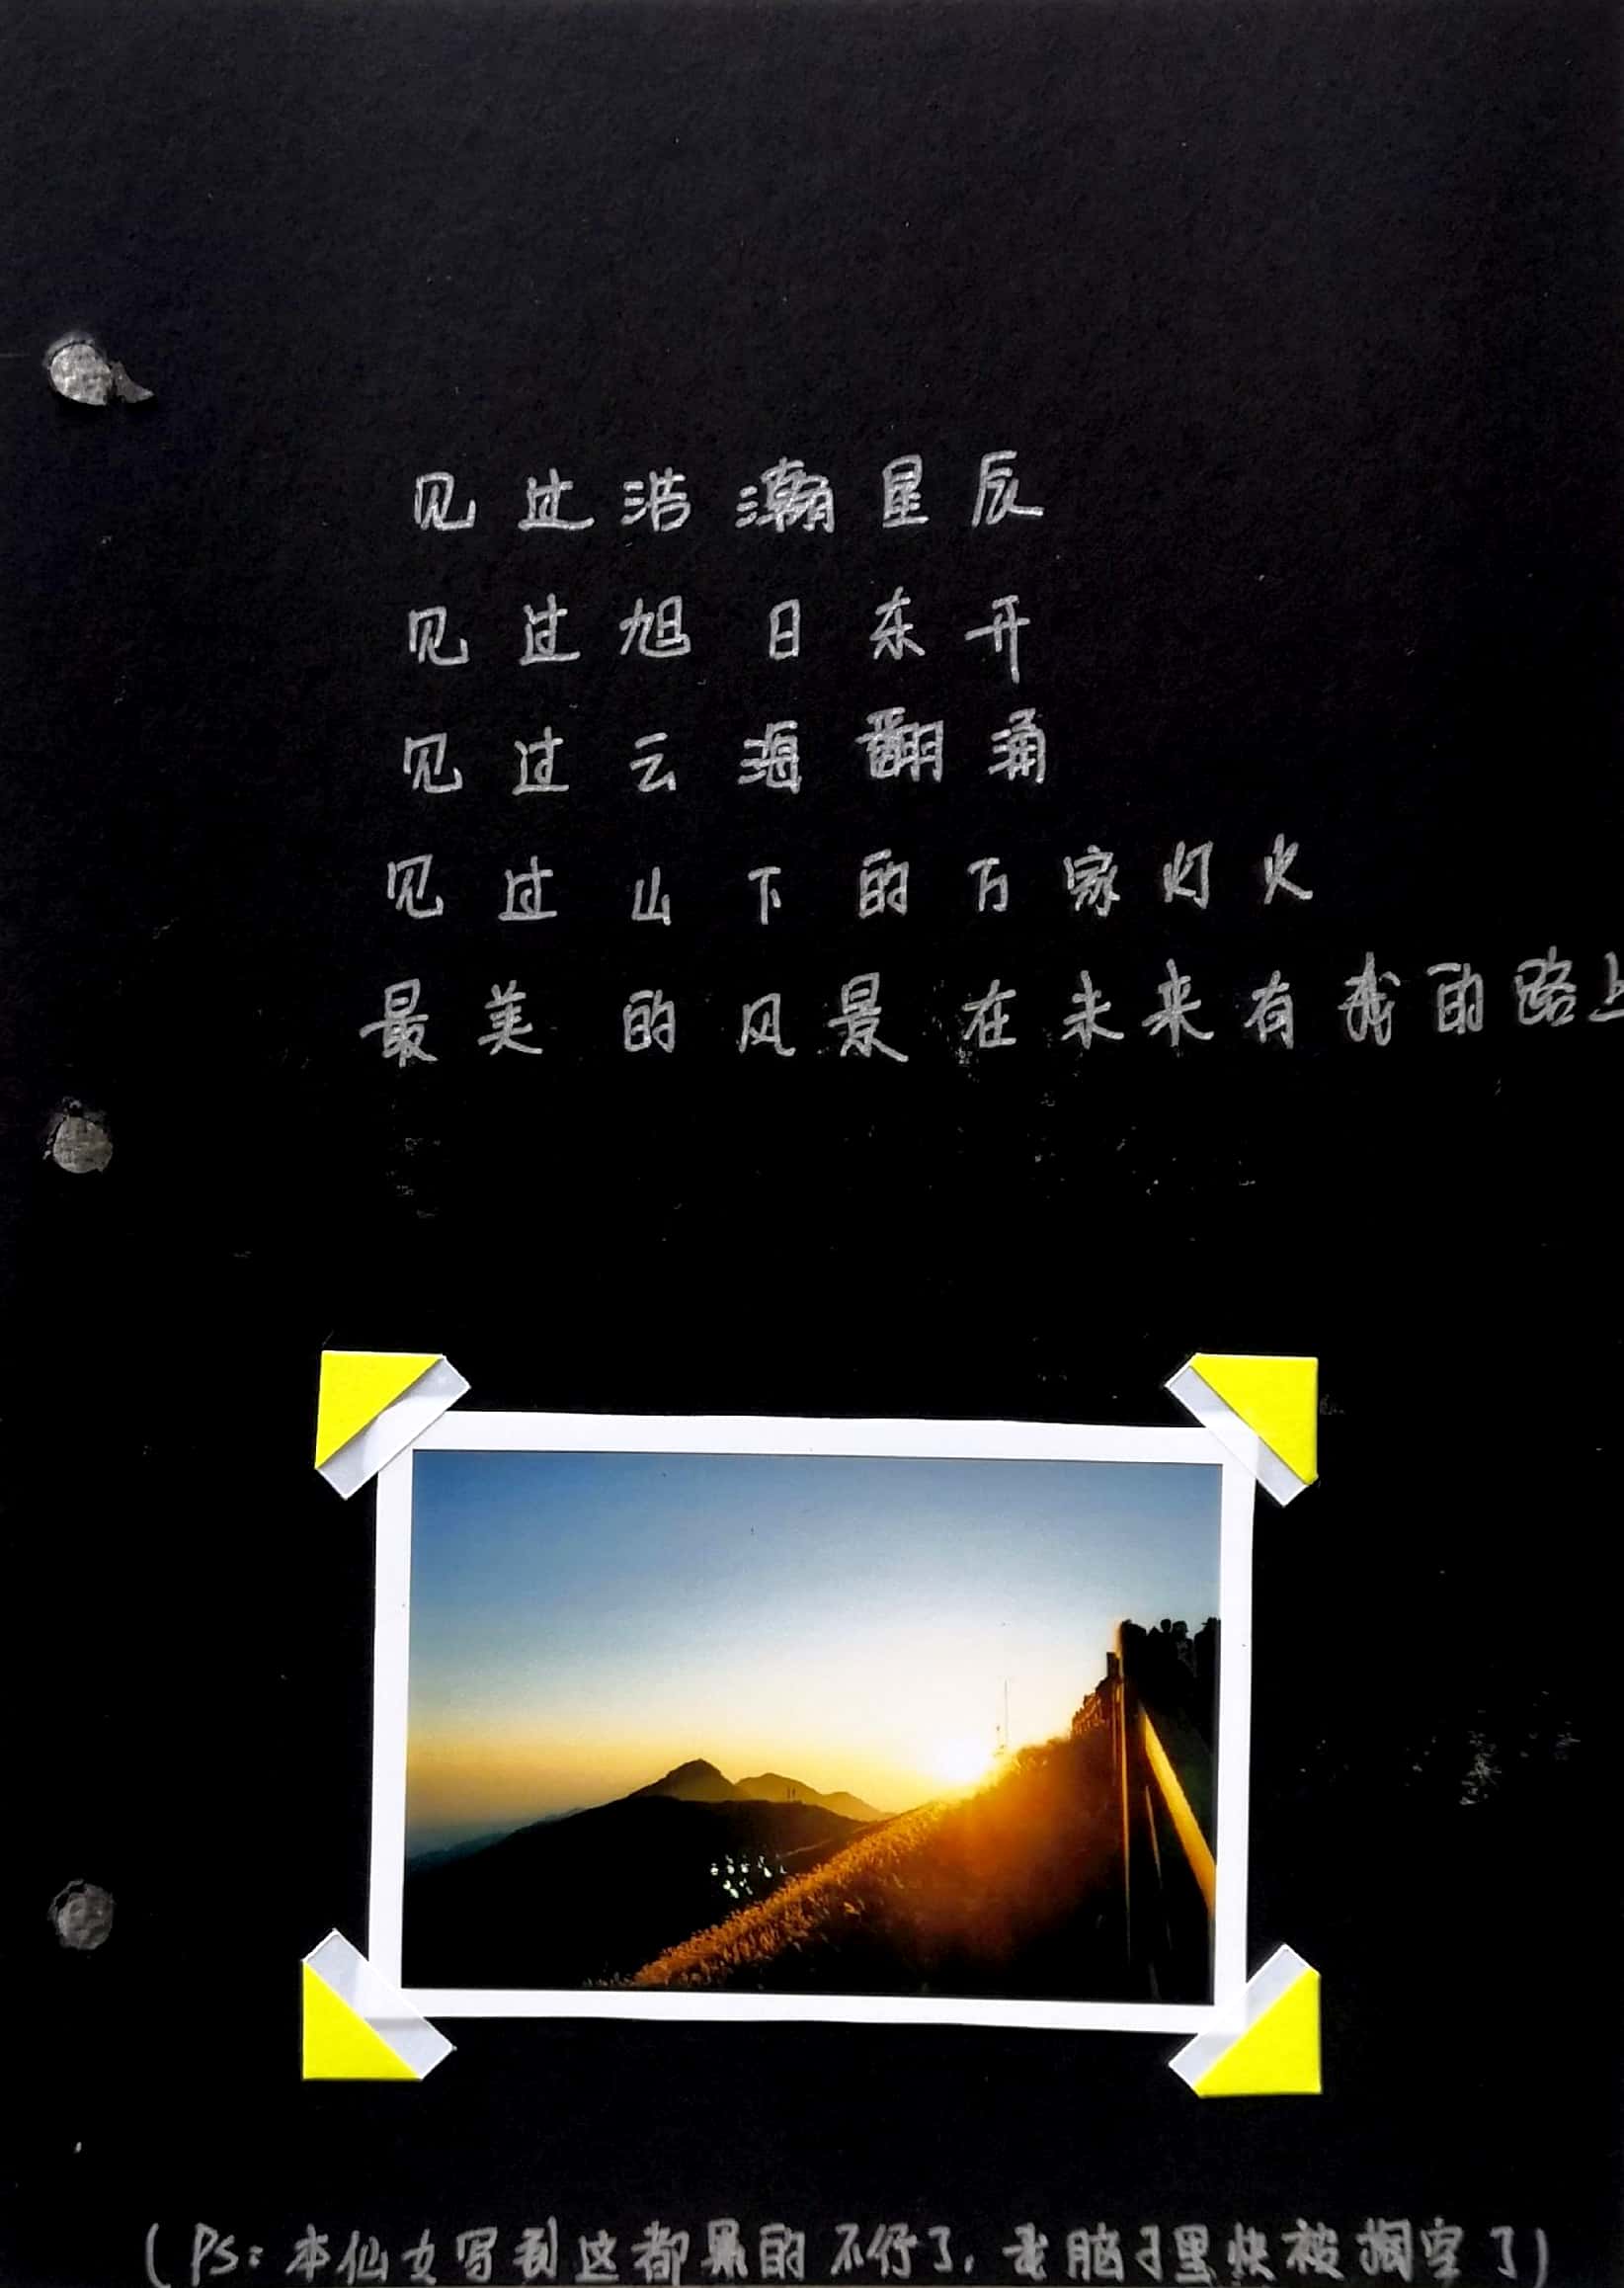 见过浩瀚星辰
见过旭日东开
见过云海翻涌
见过山下的万家灯火
最美的风景在未来有我的路上
(PS:本仙女写到这都累的不行了,我脑子里快被掏空了)